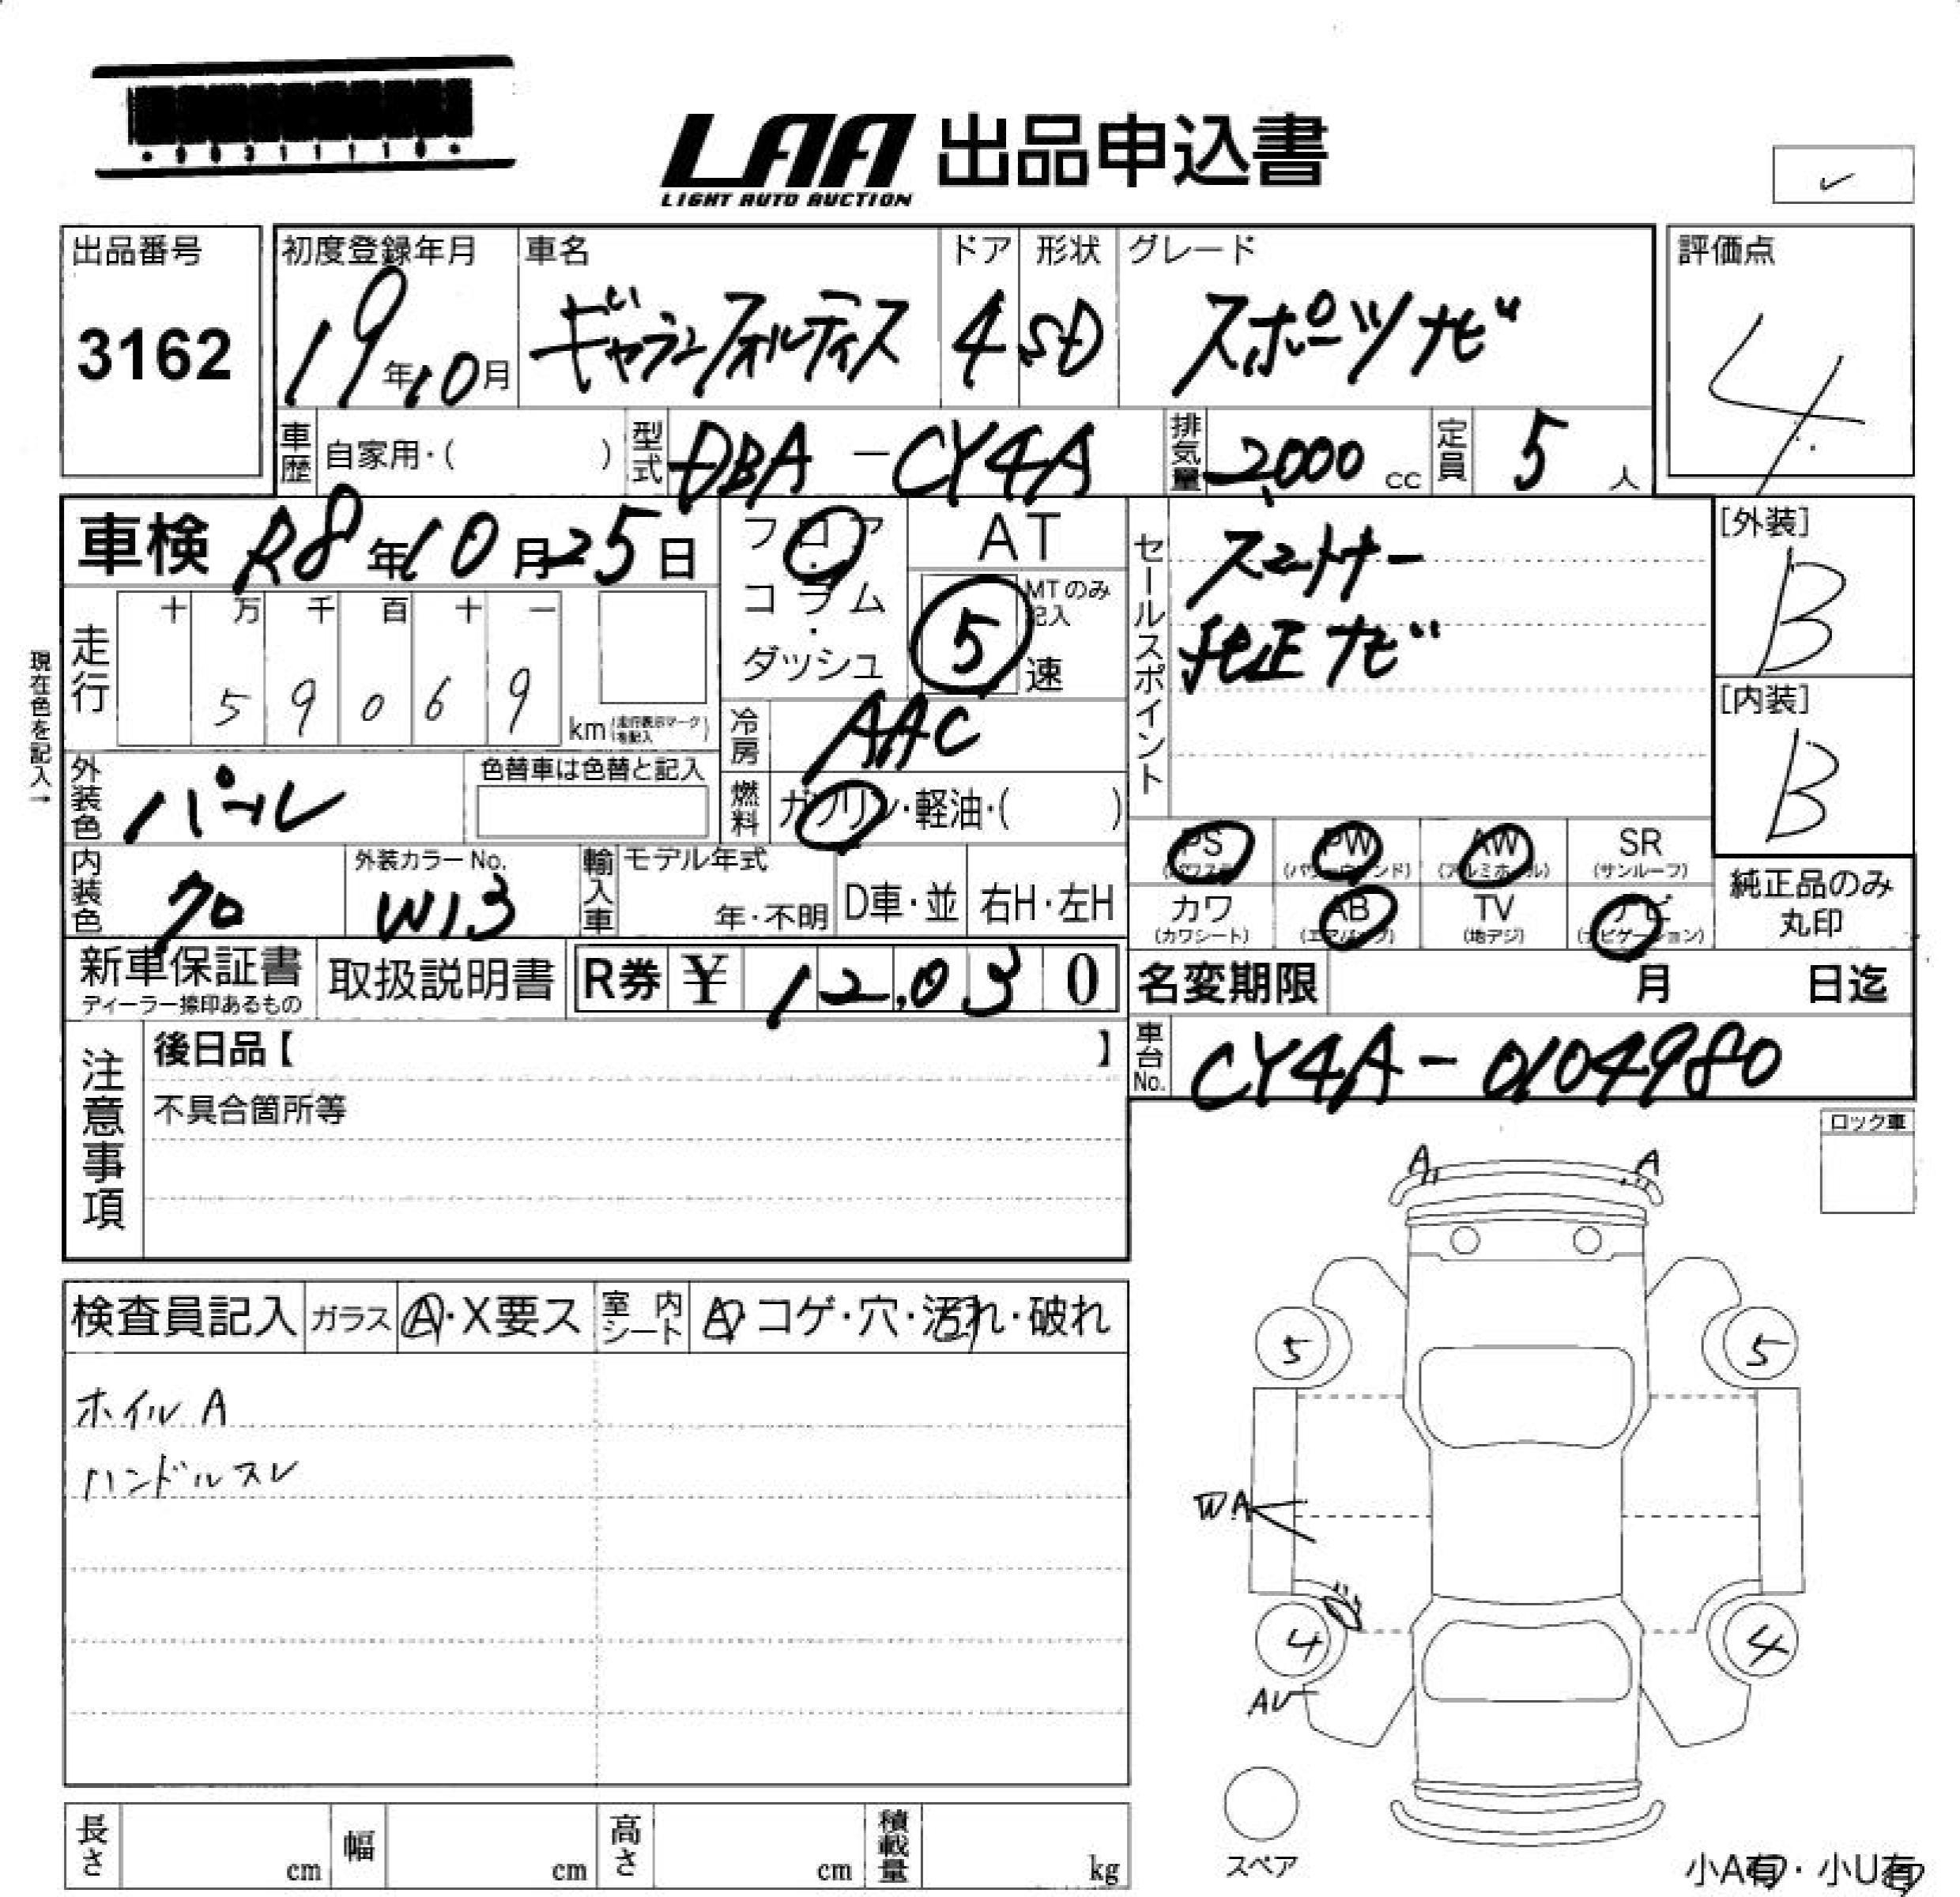 LAA 出品申込書
LIGHT AUTO AUCTION
✓
出品番号 初度登録年月 車名 ドア 形状 グレード 評価点
3162 19年10月 ギャランフォルティス 4 SD スポーツナビ 4
車歴 自家用・( ) 型式 DBA-CY4A 排気量 2,000 cc 定員 5 人
車検 R8年10月25日 フロア・コラム・ダッシュ AT
MTのみ記入 5 速
セールスポイント
スマートキー
純正ナビ
[外装] B
[内装] B
現在色を記入→
走行 十 万 千 百 十 一
5 9 0 6 9 km (走行表示マークを記入)
冷房 AAC
外装色 パール 色替車は色替と記入
燃料 ガソリン・軽油・( )
PS (パワステ) PW (パワーウィンド) AW (アルミホイール) SR (サンルーフ)
カワ (カワシート) AB (エアバッグ) TV (地デジ) ナビ (ナビゲーション)
純正品のみ
丸印
内装色 クロ 外装カラーNo. W13 輸入車 モデル年式 年・不明 D車・並 右H・左H
新車保証書 ディーラー捺印あるもの 取扱説明書 R券 ¥ 12,030
名変期限 月 日迄
車台No. CY4A-0104980
注意事項 後日品【 】
不具合箇所等
ロック車
A A
検査員記入 ガラス A・X要ス 室内シート A コゲ・穴・汚れ・破れ
ホイル A
ハンドルスレ
5 5
WA
4 4
AU
スペア
長さ cm 幅 cm 高さ cm 積載量 kg
小A有・小U有